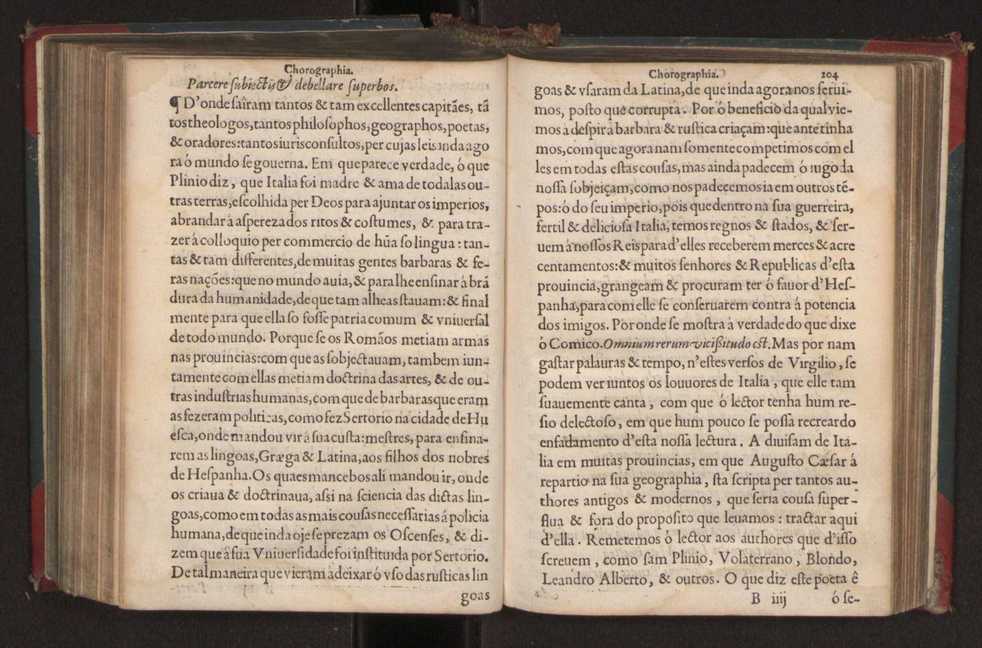 Chorographia.
Parcere subiectis & debellare superbos.
¶ D'onde saîram tantos & tam excellentes capitães, tã
tos theologos, tantos philosophos, geographos, poetas,
& oradores: tantos iurisconsultos, per cujas leis inda ago
ra ó mundo se governa. Em que parece verdade, ó que
Plinio diz, que Italia foi madre & ama de todalas ou-
tras terras, escolhida per Deos para ajuntar os imperios,
abrandar á aspereza dos ritos & costumes, & para tra-
zer á colloquio per commercio de hũa so lingua: tan-
tas & tam differentes, de muitas gentes barbaras & fe-
ras nações: que no mundo auia, & para lhe ensinar á brã
dura da humanidade, de que tam alheas stauam: & final
mente para que ella so fosse patria comum & vniuersal
de todo mundo. Porque se os Romãos metiam armas
nas prouincias: com que as sobjectauam, tambem iun-
tamente com ellas metiam doctrina das artes, & de ou-
tras industrias humanas, com que de barbaras que eram
as fezeram politicas, como fez Sertorio na cidade de Hu
esca, onde mandou vir á sua custa: mestres, para ensina-
rem as lingoas, Græga & Latina, aos filhos dos nobres
de Hespanha. Os quaes mancebos ali mandou ir, onde
os criaua & doctrinaua, assi na sciencia das dictas lin-
goas, como em todas as mais cousas necessarias á policia
humana, de que inda oje se prezam os Oscenses, & di-
zem que á sua Vniuersidade foi instituida por Sertorio.
De tal maneira que vieram á deixar ó vso das rusticas lin
goas
Chorographia. 204
goas & vsaram da Latina, de que inda agora nos serui-
mos, posto que corrupta. Por ó beneficio da qual vie-
mos á despir á barbara & rustica criaçam: que ante tinha
mos, com que agora nam somente competimos com el
les em todas estas cousas, mas ainda padecem ó iugo da
nossa sobjeiçam, como nos padecemos ia em outros tẽ-
pos: ó do seu imperio, pois que dentro na sua guerreira,
fertil & deliciosa Italia, temos regnos & stados, & ser-
uem á nossos Reis para d'elles receberem merces & acre
centamentos: & muitos senhores & Republicas d'esta
prouincia, grangeam & procuram ter ó fauor d'Hes-
panha, para com elle se conseruarem contra á potencia
dos imigos. Por onde se mostra á verdade do que dixe
ó Comico. Omnium rerum vicißitudo est. Mas por nam
gastar palauras & tempo, n'estes versos de Virgilio, se
podem ver iuntos os louuores de Italia, que elle tam
suauemente canta, com que ó lector tenha hum re-
sio delectoso, em que hum pouco se possa recrear do
enfadamento d'esta nossa lectura. A diuisam de Ita-
lia em muitas prouincias, em que Augusto Cæsar á
repartio na sua geographia, sta scripta per tantos au-
thores antigos & modernos, que seria cousa super-
flua & fora do proposito que leuamos: tractar aqui
d'ella. Remetemos ó lector aos authores que d'isso
screuem, como sam Plinio, Volaterrano, Blondo,
Leandro Alberto, & outros. O que diz este poeta ê
B iiij ó se-